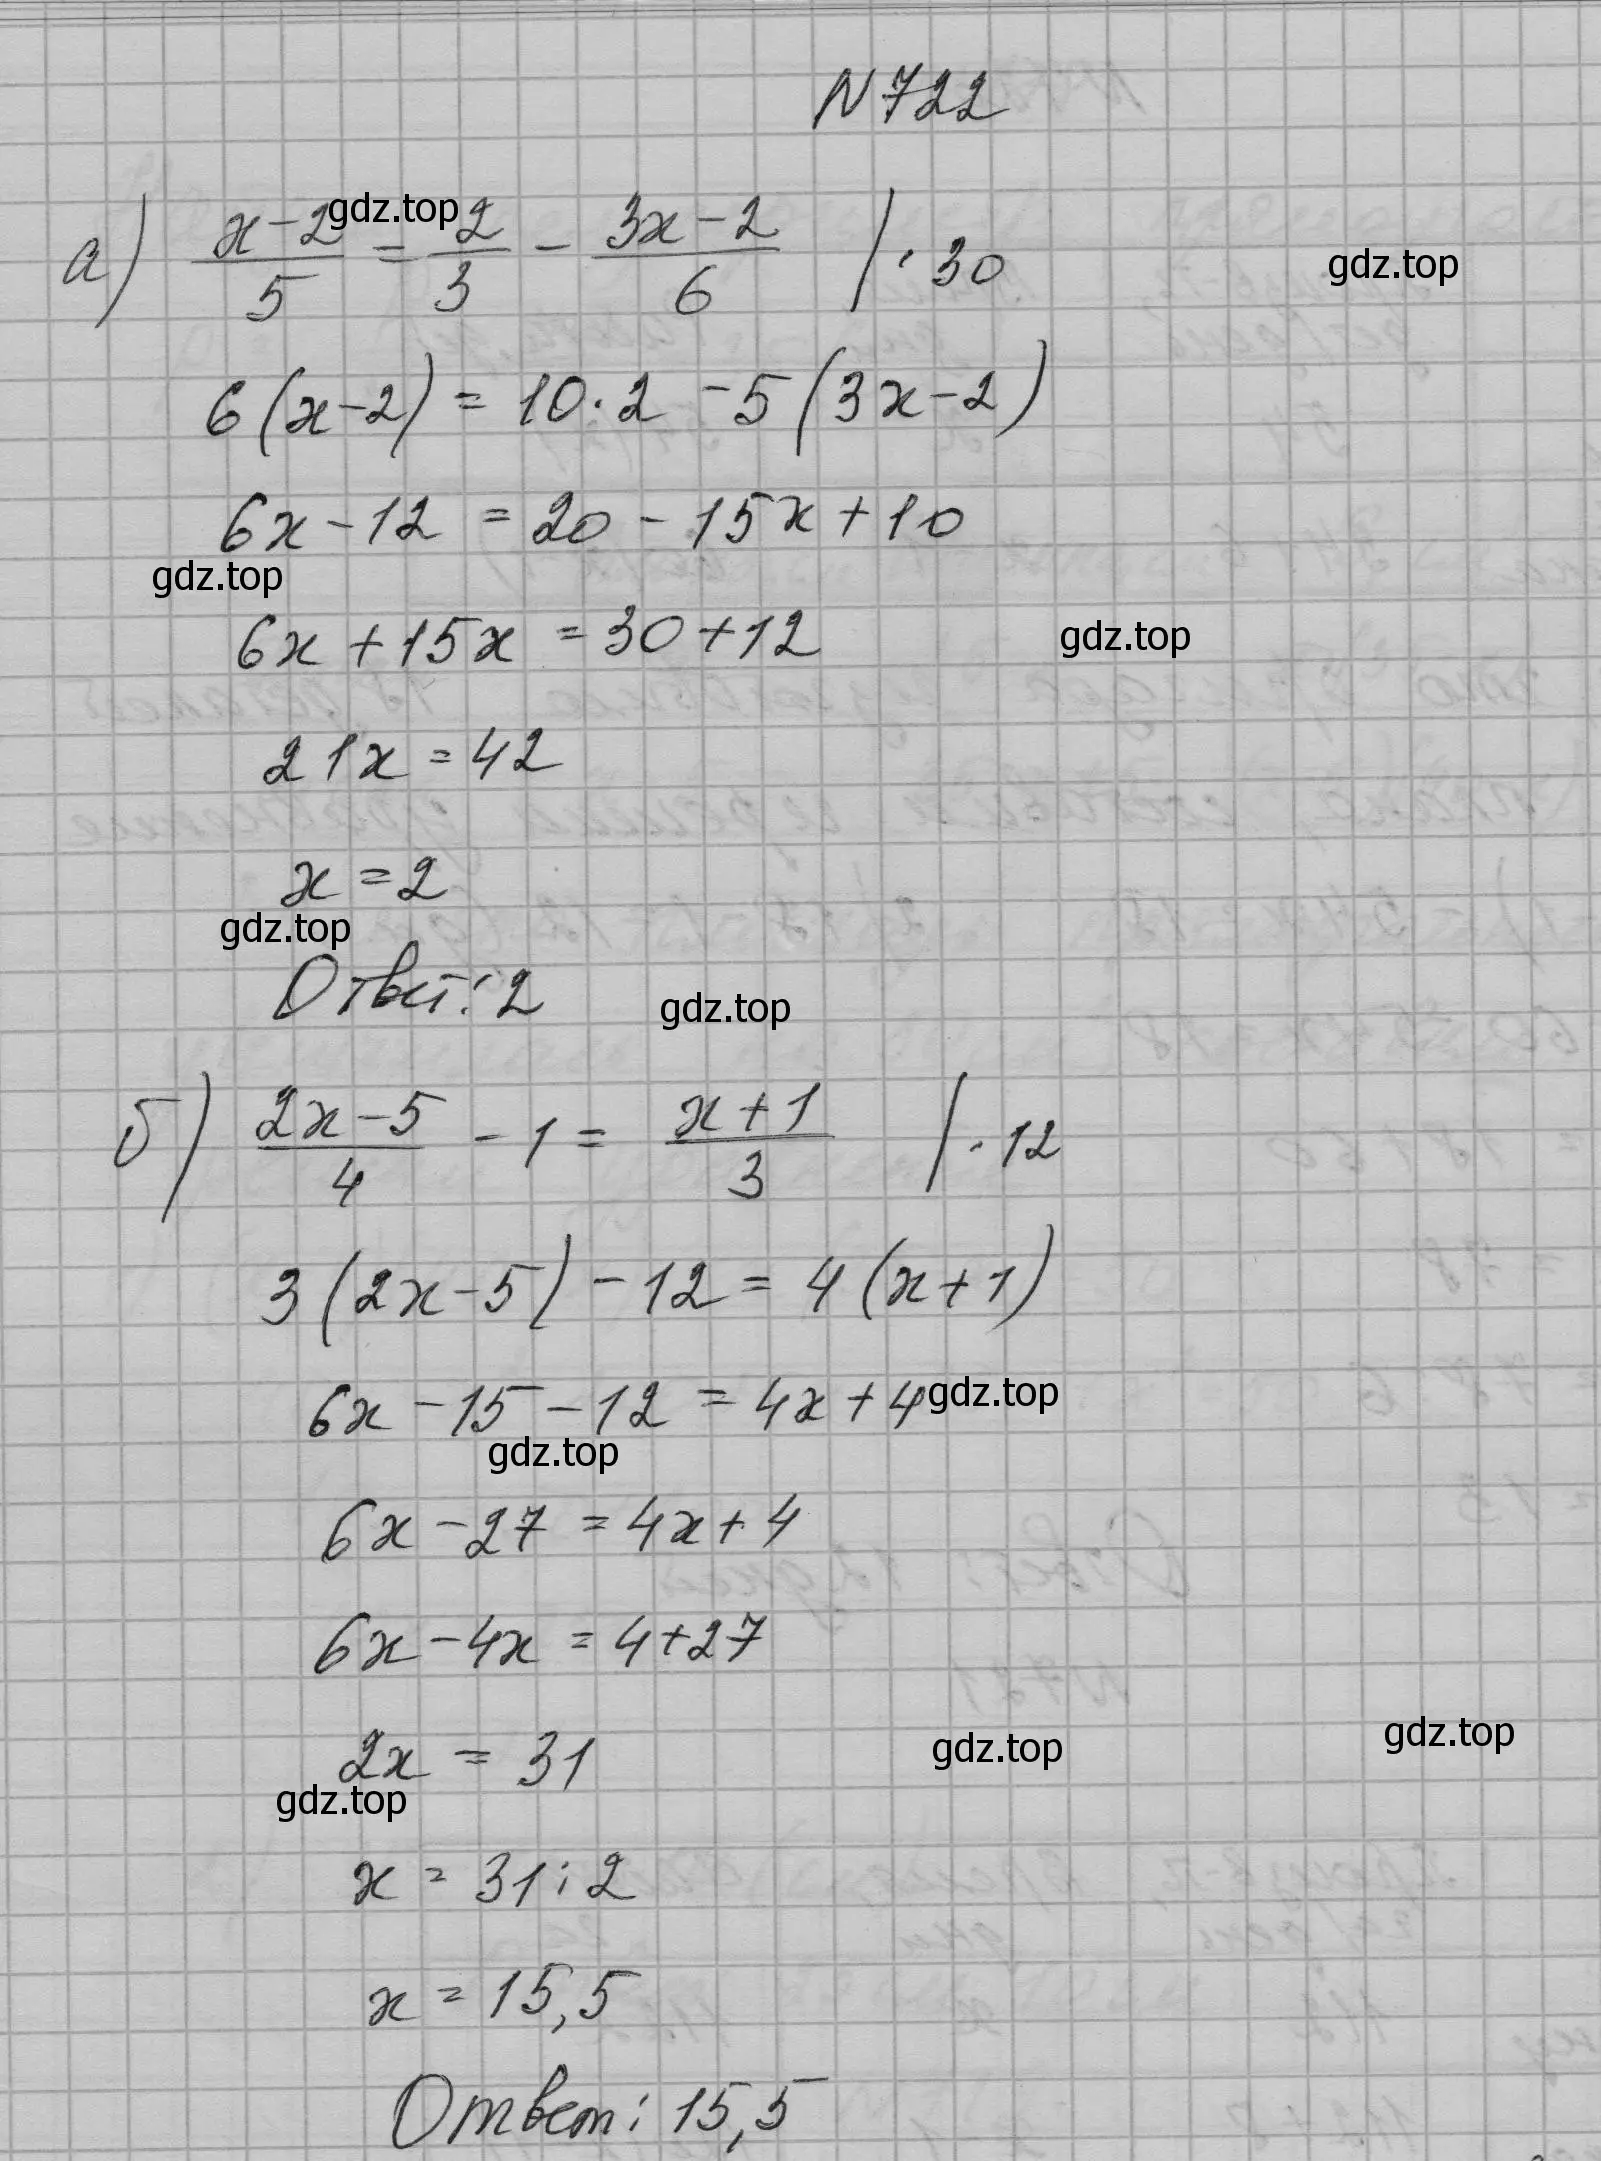 N 722
а) (x-2)/5 = 2/3 - (3x-2)/6 | · 30
6(x-2) = 10·2 - 5(3x-2)
6x - 12 = 20 - 15x + 10
6x + 15x = 30 + 12
21x = 42
x = 2
Ответ: 2
б) (2x-5)/4 - 1 = (x+1)/3 | · 12
3(2x-5) - 12 = 4(x+1)
6x - 15 - 12 = 4x + 4
6x - 27 = 4x + 4
6x - 4x = 4 + 27
2x = 31
x = 31 : 2
x = 15,5
Ответ: 15,5
gdz.top
gdz.top
gdz.top
gdz.top
gdz.top
gdz.top
gdz.top
gdz.top
gdz.top
gdz.top
gdz.top